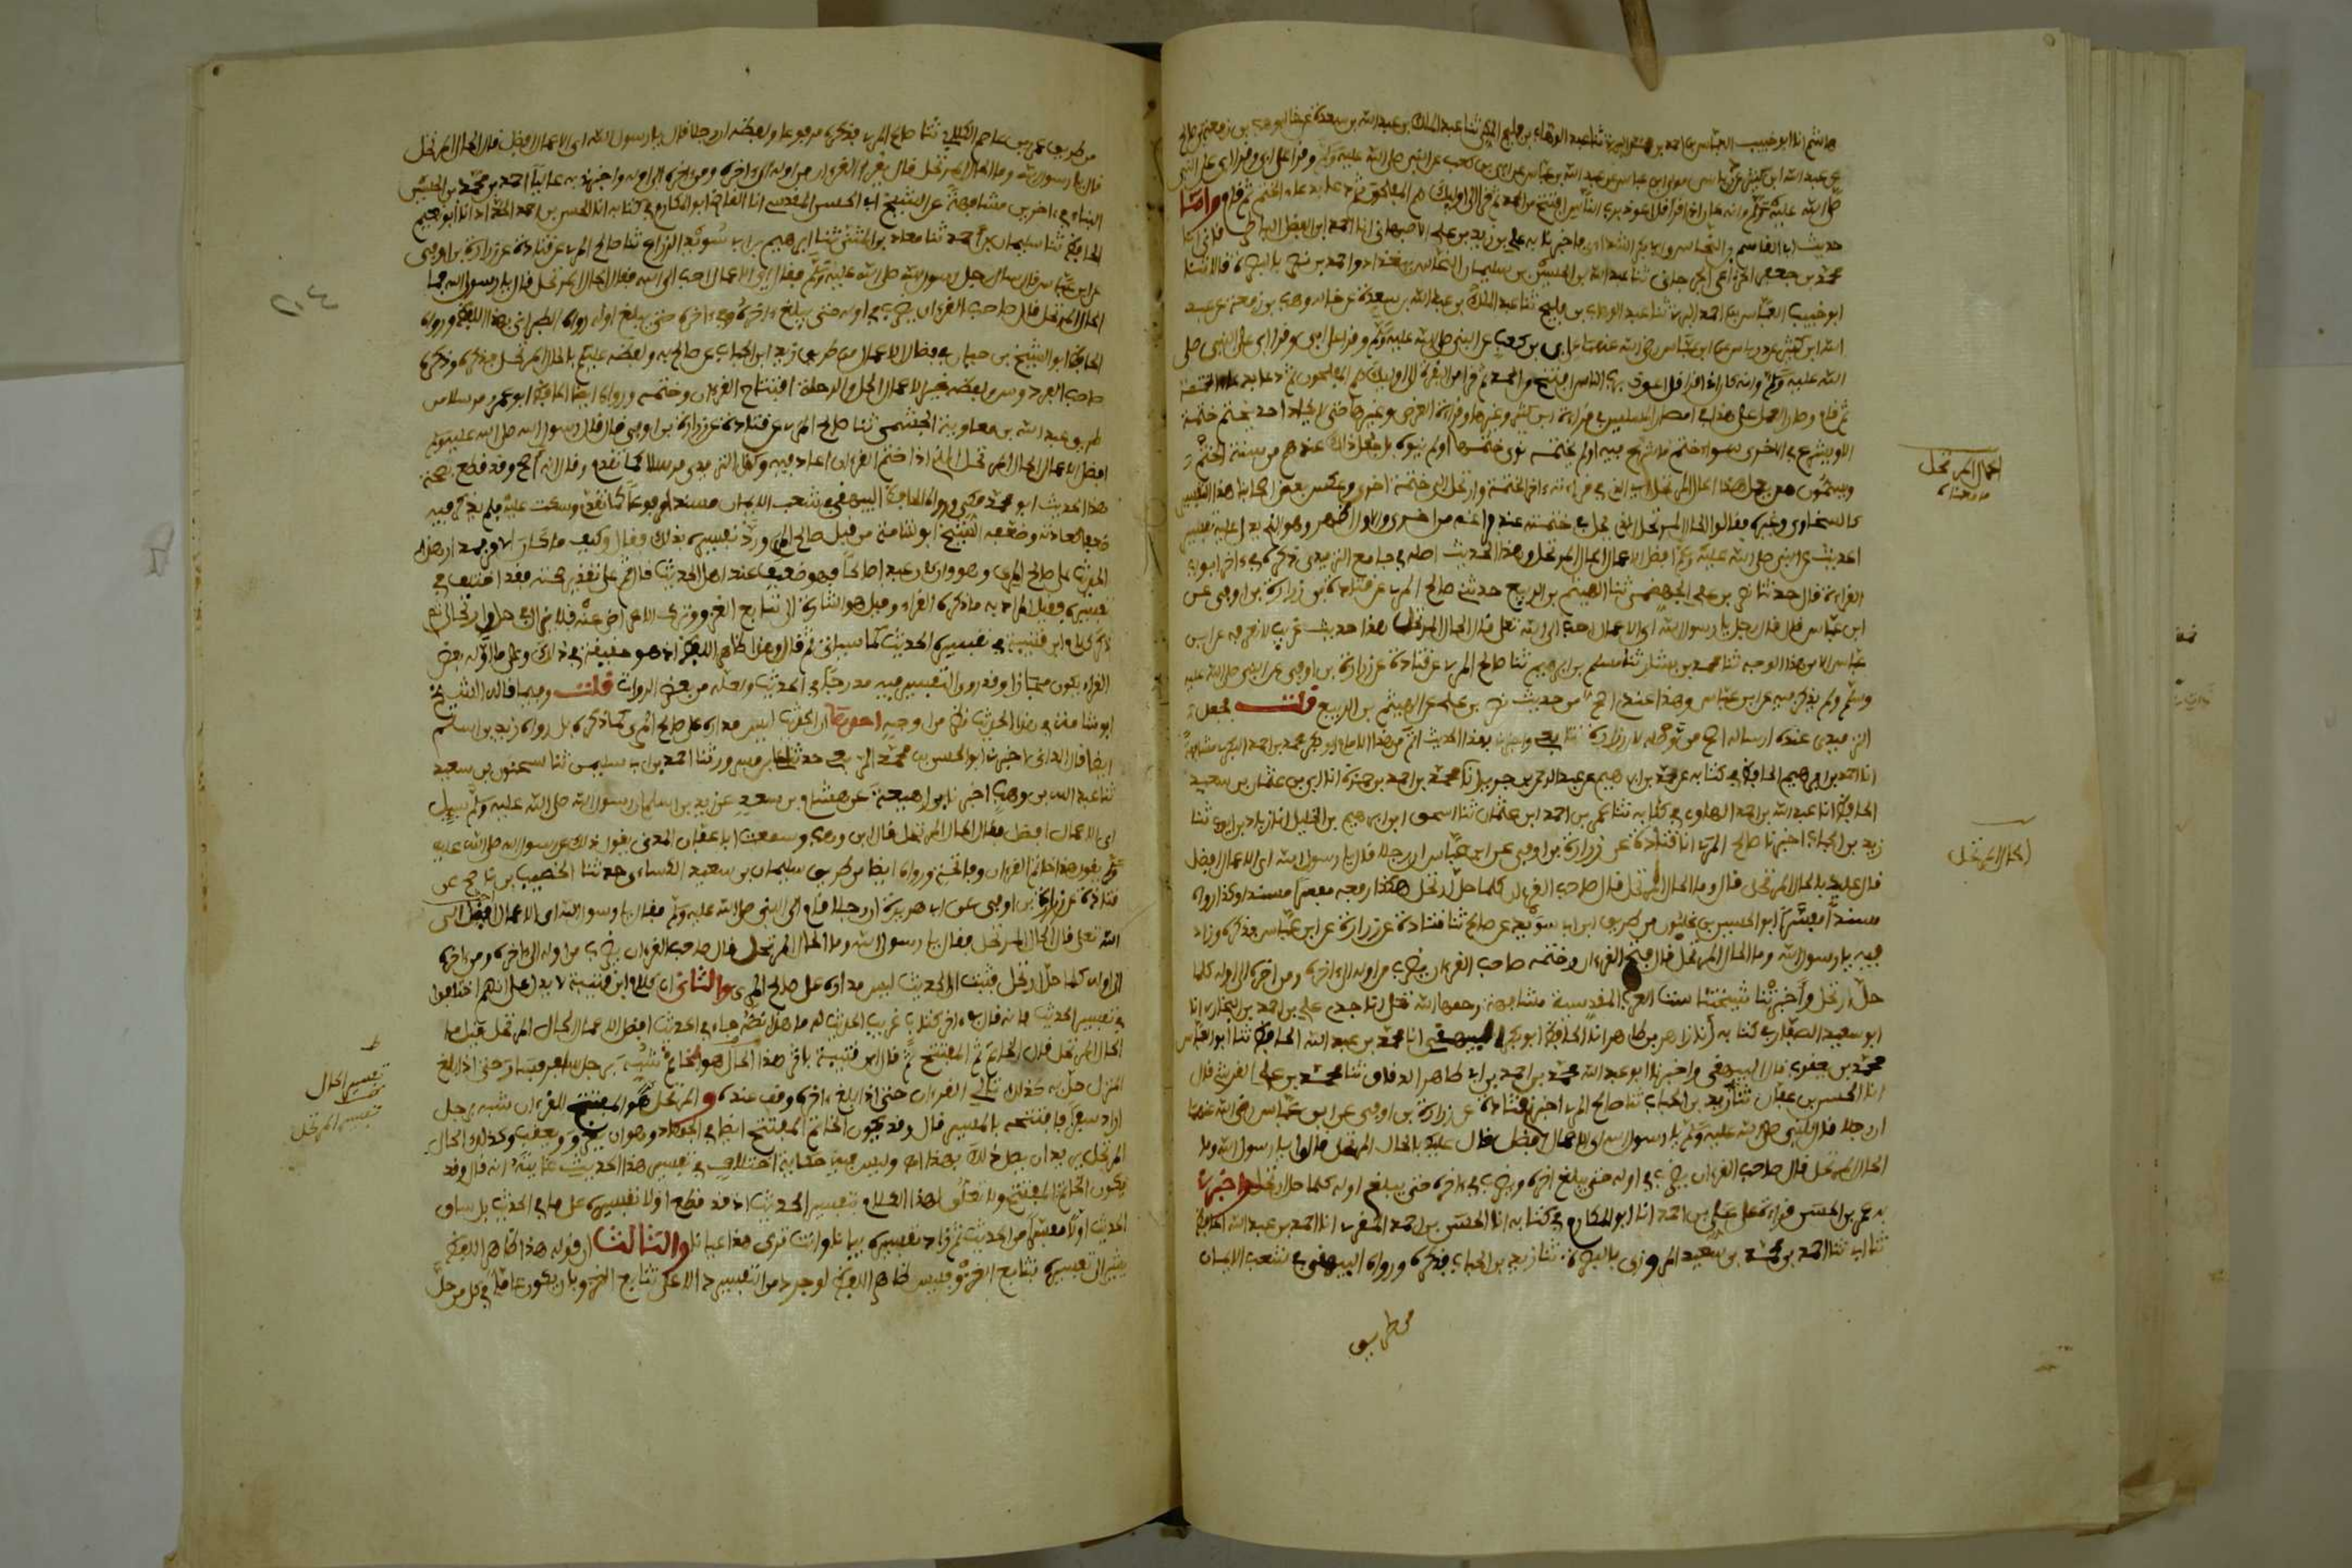 هاشم انا ابو خبيب العباس بن احمد بن محمد البرتي ثنا عبد الوهاب بن فليح المكي ثنا عبد الملك بن عبد الله بن سعوة عن خاله وهب بن زمعة بن صالح
عن عبد الله ابن كثير عن درباس مولى ابن عباس عن عبد الله بن عباس عن ابي بن كعب عن النبي صلى الله عليه وسلم وقرا على ابي وقرا ابي على النبي
صلى الله عليه وسلم وانه كان اذا قرا قل اعوذ برب الناس افتتح من الحمد ثم قرا الى اوليك هم المفلحون ثم دعا بدعاء الختم ثم قام واما
حديث ابا القاسم بن النخاس وابي بكر الشذائي فاخبرنا به علي بن زيد بن علي الاصبهاني انا احمد ابن الفضل الباطرقاني انا
محمد بن جعفر الخزاعي الجرجاني ثنا عبد الله بن الحسين بن سليمان النخاس ببغداد واحمد بن نصر بالبصرة قالا ثنا
ابو خبيب العباس بن احمد البرتي ثنا عبد الوهاب بن فليح ثنا عبد الملك بن عبد الله بن سعوة عن خاله وهب بن زمعة عن عبد
الله ابن كثير عن درباس عن ابن عباس رضي الله عنهما عن ابي بن كعب عن النبي صلى الله عليه وسلم وقرا على ابي وقرا ابي على النبي صلى
الله عليه وسلم وانه كان اذا قرا قل اعوذ برب الناس افتتح من الحمد ثم قرا من البقرة الى اوليك هم المفلحون ثم دعا بدعاء الختمة
ثم قام وصار العمل على هذا في امصار المسلمين في قراءة ابن كثير وغيرها وقراءة العرض وغيرها حتى لا يكاد احد يختم ختمة
الا ويشرع في الاخرى سواء ختم ما شرع فيه او لم يختمه نوى ختمها او لم ينوه بل جعل ذلك عندهم من سنة الختم
ويسمون من يفعل هذا الحال المرتحل اي الذي حل في قراءته اخر الختمة وارتحل الى ختمة اخرى وعكس بعض اصحابنا هذا التفسير
كالسخاوي وغيره فقالوا الحال المرتحل الذي يحل في ختمة عند فراغه من اخرى والاول اظهر وهو الذي يدل عليه تفسير
الحديث عن النبي صلى الله عليه وسلم افضل الاعمال الحال المرتحل وهذا الحديث اصله في جامع الترمذي ذكره في اخر ابواب
القراءة قال حدثنا نصر بن علي الجهضمي ثنا الهيثم بن الربيع حدثني صالح المري عن قتادة عن زرارة بن اوفى عن
ابن عباس قال قال رجل يا رسول الله اي الاعمال احب الى الله تعلى قال الحال المرتحل هذا حديث غريب لا نعرفه عن ابن
عباس الا من هذا الوجه ثنا محمد بن بشار ثنا مسلم بن ابراهيم ثنا صالح المري عن قتادة عن زرارة بن اوفى عن النبي صلى الله عليه
وسلم ولم يذكر فيه عن ابن عباس وهذا عندي اصح من حديث نصر بن علي عن الهيثم بن الربيع قلت فجعل
الترمذي عنده ارساله اصح من وصله لان زرارة تابعي واخبرنا بهذا الحديث اتم من هذا الامام ابو بكر محمد بن احمد البكري مشافهة
انا احمد بن ابراهيم الحافظ في كتابه عن محمد بن ابراهيم عن عبد الرحمن جوبر انا محمد بن احمد بن حمزة انا ابي بن عثمان بن سعيد
الحافظ انا عبد الله بن احمد الهلوي في كتابه ثنا عمر بن احمد ابن عثمان ثنا اسحق ابن ابراهيم بن الخليل انا زياد بن ايوب ثنا
زيد بن الحباب اخبرنا صالح المري انا قتادة عن زرارة بن اوفى عن ابن عباس ان رجلا قال يا رسول الله اي الاعمال افضل
قال عليك بالحال المرتحل قال وما الحال المرتحل قال صاحب القرءان كلما حل ارتحل هكذا رفعه مفسرا مسندا وكذا رواه
مسندا مفسرا ابو الحسين بن غلبون من طريق ابن ابي سويد عن صالح ثنا قتادة عن زرارة عن ابن عباس فذكره وزاد
فيه يا رسول الله وما الحال المرتحل قال فتح القرءان وختمه صاحب القرءان يضرب من اوله الى اخره ومن اخره الى اوله كلما
حل ارتحل واخبرتنا شيختنا ست العرب المقدسية مشافهة رحمها الله تعلى انا جدي علي بن احمد بن البخاري انا
ابو سعيد الصفار في كتابه انا زاهر بن طاهر انا الحافظ ابو بكر البيهقي انا محمد بن عبد الله الحافظ ثنا ابو العباس
محمد بن يعقوب قال البيهقي واخبرنا ابو عبد الله محمد بن احمد بن ابي طاهر الدقاق ثنا محمد بن علي القرشي قال
انا الحسن بن عفان ثنا زيد بن الحباب ثنا صالح المري اخبرنا قتادة عن زرارة بن اوفى عن ابن عباس رضي الله عنهما
ان رجلا قال للنبي صلى الله عليه وسلم يا رسول الله اي الاعمال افضل قال عليك بالحال المرتحل قالوا يا رسول الله وما
الحال المرتحل قال صاحب القرءان يضرب في اوله حتى يبلغ اخره ويضرب في اخره حتى يبلغ اوله كلما حل ارتحل واخبرنا
به عمر بن الحسن قراءة على علي بن احمد انا ابو المكارم في كتابه انا الحسن بن احمد المقرى انا احمد بن عبد الله الحافظ
ثنا ابي ثنا احمد بن محمد بن سعيد المروزي بالبصرة ثنا زيد بن الحباب فذكره ورواه البيهقي في شعب الايمان
من طريق
الحال المرتحل
ما معناه
الحال المرتحل
من طريق عمر بن عاصم الكلابي ثنا صالح المري فذكره مرفوعا ولفظه ان رجلا قال يا رسول الله اي الاعمال افضل قال الحال المرتحل
قال يا رسول الله وما الحال المرتحل قال يقرا القرءان من اوله الى اخره ومن اخره الى اوله واخبرنا به عاليا احمد بن محمد بن الحسين
البناء في اخرين مشافهة عن الشيخ ابي الحسن المقدسي انا القاضي ابو المكارم في كتابه انا الحسن بن احمد الحداد انا ابو نعيم
الحافظ ثنا سليمان بن احمد ثنا معاذ بن المثنى ثنا ابراهيم بن ابي سويد الزراع ثنا صالح المري عن قتادة عن زرارة بن اوفى
عن ابن عباس قال سال رجل رسول الله صلى الله عليه وسلم فقال اي الاعمال احب الى الله فقال الحال المرتحل قال يا رسول الله ما
الحال المرتحل قال صاحب القرءان يضرب في اوله حتى يبلغ اخره وفي اخره حتى يبلغ اوله رواه الطبراني بهذا اللفظ ورواه
الحافظ ابو الشيخ بن حيان في فضائل الاعمال من طريق زيد ابن الحباب عن صالح به ولفظه عليكم بالحال المرتحل فذكره وذكره
صاحب الفردوس ولفظه خير الاعمال الحل والرحلة افتتاح القرءان وختمه ورواه ايضا الحافظ ابو عمرو مرسلا من
طريق عبد الله بن معاوية الجمحي ثنا صالح المري عن قتادة عن زرارة بن اوفى قال قال رسول الله صلى الله عليه وسلم
افضل الاعمال الحال المرتحل الذي اذا ختم القرءان اعاد فيه وكذا الترمذي مرسلا كما تقدم وقال انه اصح وقد قطع بصحة
هذا الحديث ابو محمد مكي ورواه الحافظ البيهقي في شعب الايمان مسندا مرفوعا كما تقدم وسكت عليه فلم يذكر فيه
ضعفا كعادته وضعفه الشيخ ابو شامة من قبل صالح المري ورد تفسيره بذلك فقال وكيف ما كان الامر فمدار هذا
الحديث على صالح المري وهو وان كان عبدا صالحا فهو ضعيف عند اهل الحديث قال ثم على تقدير صحته فقد اختلف في
تفسيره فقيل المراد به ما ذكره القراء وقيل هو اشارة الى تتابع الغزو وترك الاعراض عنه فلا يزال في حل وارتحال ثم
ذكر كلام ابن قتيبة في تفسيره الحديث كما سياتي ثم قال وهذا ظاهر اللفظ اذ هو حقيقة في ذلك وعلى ما اوله بعض
القراء يكون مجازا وقد روى التفسير فيه مدرجا في الحديث ولعله من بعض الرواة قلت وفيما قاله الشيخ
ابو شامة في هذا الحديث نظر من اوجه احدها ان الحديث ليس مداره على صالح المري كما ذكره بل رواه زيد بن اسلم
ايضا قال الداني اخبرنا ابو الحسن بن محمد الربعي حدثنا علي بن مسرور ثنا احمد بن ابي سليمن ثنا سحنون بن سعيد
ثنا عبد الله بن وهب اخبرنا ابن لهيعة عن هشام بن سعد عن زيد بن اسلم ان رسول الله صلى الله عليه وسلم سيل
اي الاعمال افضل فقال الحال المرتحل قال ابن وهب وسمعت ابا عفان المدني يقول ذلك عن رسول الله صلى الله عليه
وسلم يقول هذا خاتم القرءان وفاتحه ورواه ايضا من طريق سليمان بن سعيد الكسائي حدثنا الخصيب بن ناصح عن
قتادة عن زرارة بن اوفى عن ابي هريرة ان رجلا قام الى النبي صلى الله عليه وسلم فقال يا رسول الله اي الاعمال احب الى
الله تعلى قال الحال المرتحل فقال يا رسول الله وما الحال المرتحل قال صاحب القرءان يضرب من اوله الى اخره ومن اخره
الى اوله كلما حل ارتحل فثبت ان الحديث ليس مداره على صالح المري والثاني ان كلام ابن قتيبة لا يدل على انهم اختلفوا
في تفسير الحديث فانه قال في اخر كتاب غريب الحديث له ما هذا نصه جاء في الحديث افضل الاعمال الحال المرتحل قيل ما
الحال المرتحل قال الخاتم ثم المفتتح ثم قال ابن قتيبة باثر هذا الحال هو الخاتم شبه برجل سافر فسار حتى اذا بلغ
المنزل حل به كذلك تالي القرءان حتى اذا بلغ اخره وقف عنده والمرتحل هو المفتتح القرءان شبه برجل
اراد سفرا فافتتحه بالمسير قال وقد يكون الخاتم المفتتح ايضا في الجهاد وهو ان يغزو ويعقب وكذلك الحال
المرتحل يريد ان يصل ذلك بهذا اه وليس فيه حكاية اختلاف في تفسير هذا الحديث غايته انه قال وقد
يكون الخاتم المفتتح ولا تعلق لهذا الكلام بتفسير الحديث اذ قد قطع اولا تفسيره على ما في الحديث بل ساق
الحديث اولا مفسرا من الحديث ثم زاد تفسيره بيانا وانت ترى هذا عيانا والثالث ان قوله هذا ظاهر اللفظ
يشير الى تفسيره بتتابع الغزو فليس ظاهر اللفظ لو جرد من التفسير دالا على تتابع الغزو بل يكون عاما في كل من حل
تفسير الحال
تفسير المرتحل